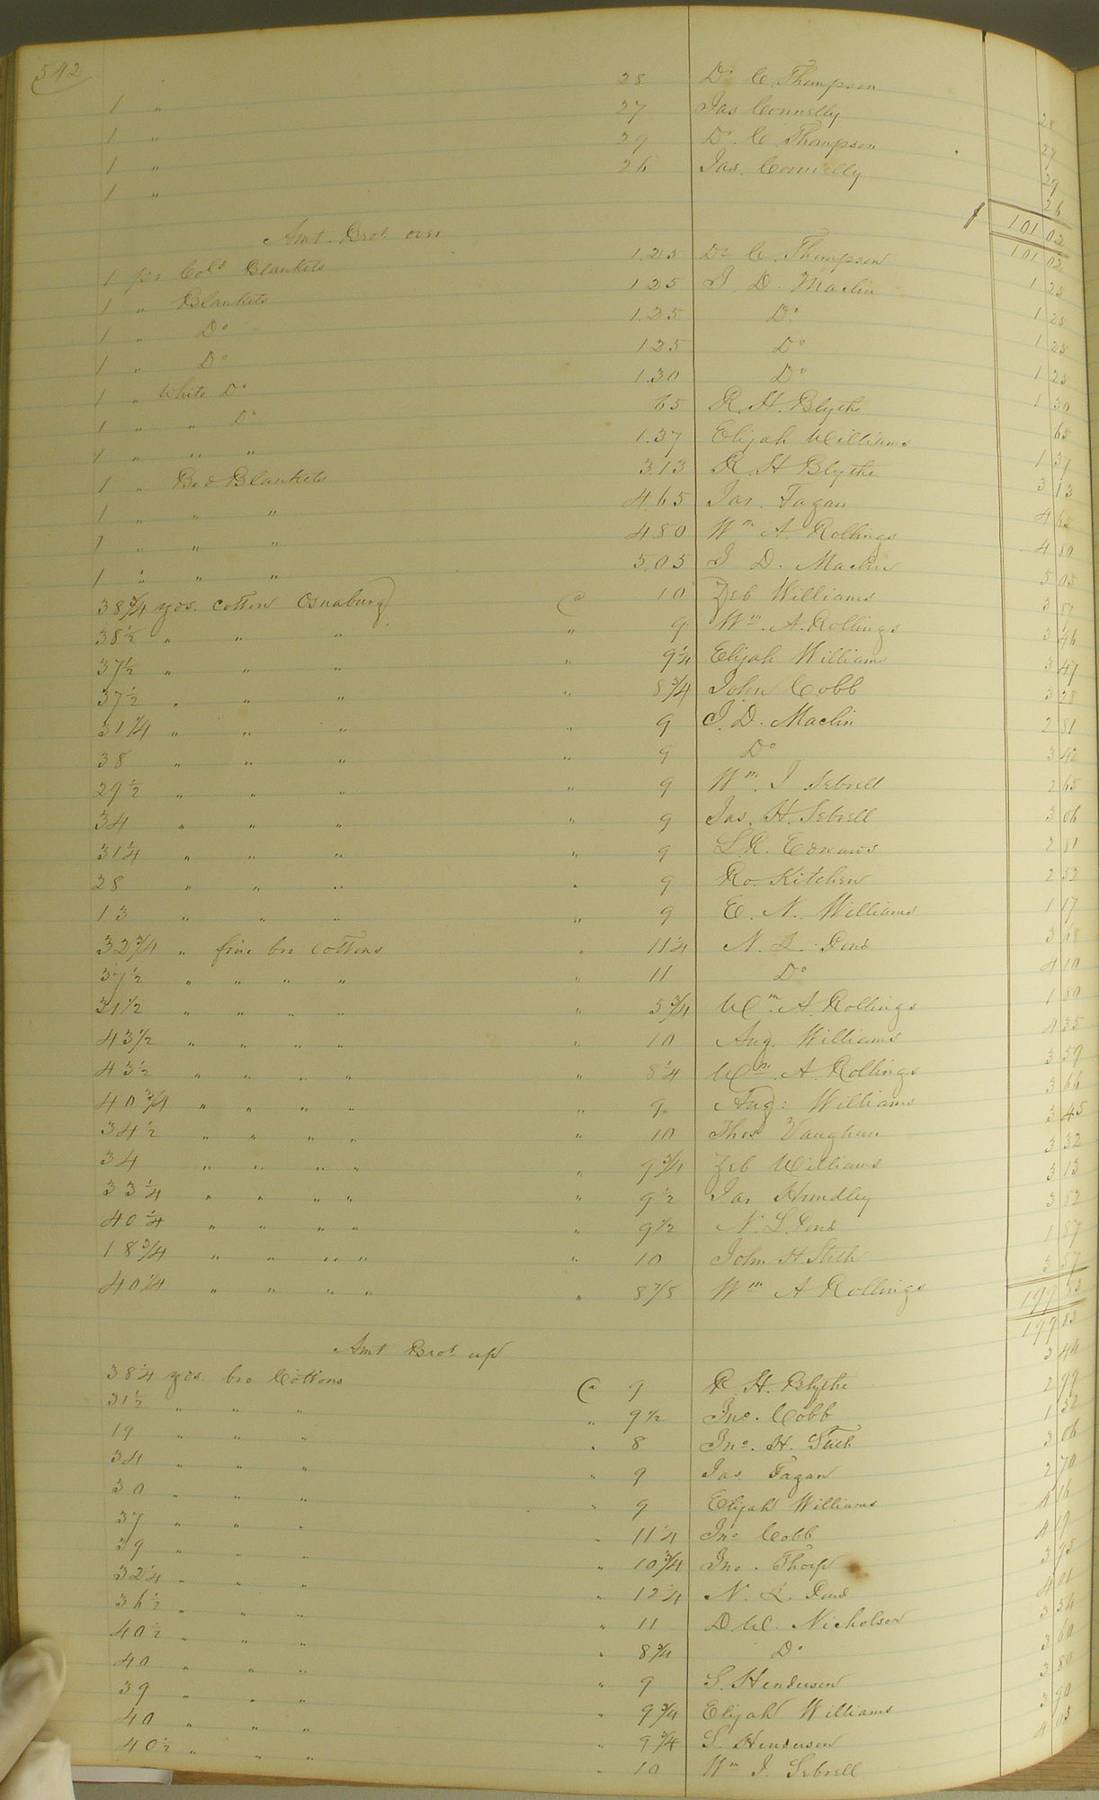 542
1 " 28 Dr C. Thompson 28
1 " 27 Jas Connelly 27
1 " 29 Dr. C Thompson 29
1 " 26 Jas. Connelly 26
101 02
Amt Brot. over 101 02
1 pr Cold Blankets 1.25 Dr C. Thompson 1 25
1 " Blankets 1 25 J D. Maclin 1 25
1 " Do 1.25 Do 1 25
1 " Do 1 25 Do 1 25
1 " White Do 1.30 Do 1 30
1 " " Do 65 R. H. Blythe 65
1 " " " 1.37 Elijah Williams 1 37
1 " Bed Blankets 3.13 R. H Blythe 3 13
1 " " " 4.65 Jas. Fagan 4 65
1 " " " 4 80 Wm A. Rollings 4 80
1 " " " 5.05 J D. Maclin 5 05
38 3/4 yds. cotton Osnaburg @ 10 Zeb Williams 3 87
38 1/2 " " " " 9 Wm. A. Rollings 3 46
37 1/2 " " " " 9 1/4 Elijah Williams 3 47
37 1/2 " " " " 8 3/4 John Cobb 3 28
31 1/4 " " " " 9 J. D. Maclin 2 81
38 " " " " 9 Do 3 42
29 1/2 " " " " 9 Wm. J Sebrell 2 65
34 " " " " 9 Jas. H. Sebrell 3 06
31 1/4 " " " " 9 L. R. Edwards 2 81
28 " " " " 9 Ro. Kitchen 2 52
13 " " " " 9 E. N. Williams 1 17
32 3/4 " fine bro cottons " 11 1/4 N. L. Dens 3 68
37 1/2 " " " " " 11 Do 4 10
31 1/2 " " " " " 5 3/4 Wm. A. Rollings 1 80
43 1/2 " " " " " 10 Aug. Williams 4 35
43 1/2 " " " " " 8 1/4 Wm. A. Rollings 3 59
40 3/4 " " " " " 9 Aug: Williams 3 66
34 1/2 " " " " " 10 Thos Vaughan 3 45
34 " " " " " 9 3/4 Zeb Williams 3 32
33 1/4 " " " " " 9 1/2 Jas Hundley 3 13
40 1/4 " " " " " 9 1/2 N. L. Dens 3 82
18 3/4 " " " " " 10 John H Stith 1 87
40 1/4 " " " " " 8 7/8 Wm A Rollings 3 57
Amt Brot up
38 1/4 yds. bro Cottons @ 9 R. H. Blythe 3 44
31 1/2 " " " " 9 1/2 Jno. Cobb 2 99
19 " " " " 8 Jno. H. Stith 1 52
34 " " " " 9 Jas. Fagan 3 06
30 " " " " 9 Elijah Williams 2 70
37 " " " " 11 1/4 Jno Cobb 4 16
39 " " " " 10 3/4 Jno. Thorp 4 19
32 1/4 " " " " 12 1/4 N. L. Dens 3 95
36 1/2 " " " " 11 D. W. Nicholson 4 01
40 1/2 " " " " 8 3/4 Do 3 54
40 " " " " 9 S. Henderson 3 60
39 " " " " 9 3/4 Elijah Williams 3 80
40 " " " " 9 3/4 S. Henderson 3 90
40 1/2 " " " " 10 Wm J. Sebrell 4 05